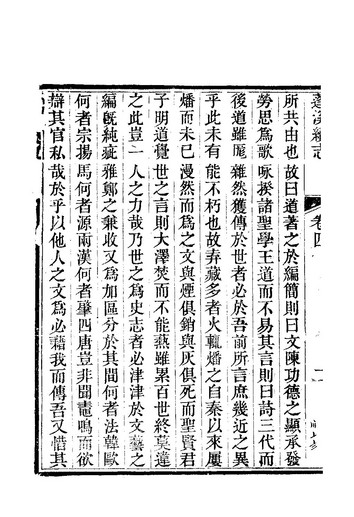 蓬溪續志
卷四
所共由也故曰道著之於編簡則曰文陳功德之顯承發
勞思爲歌咏揆諸聖學王道而不易其言則曰詩三代而
後道雖厖雜然獲傳於世者必於吾前所言庶幾近之異
乎此未有能不朽也故弆藏多者火輒燔之自秦以來屢
燔而未已漫然而爲之文與煙俱銷與灰俱死而聖賢君
子明道覺世之言則大澤焚而不能燕雖累百世終莫達
之此豈一人之力哉乃世之爲史志者必津津於文藝之
編旣純疵雅鄭之棄收又爲加區分於其間何者法韓歐
何者宗揚馬何者源兩漢何者肇四唐豈非聞鼃鳴而欲
辯其官私哉於乎以他人之文爲必藉我而傳吾又惜其